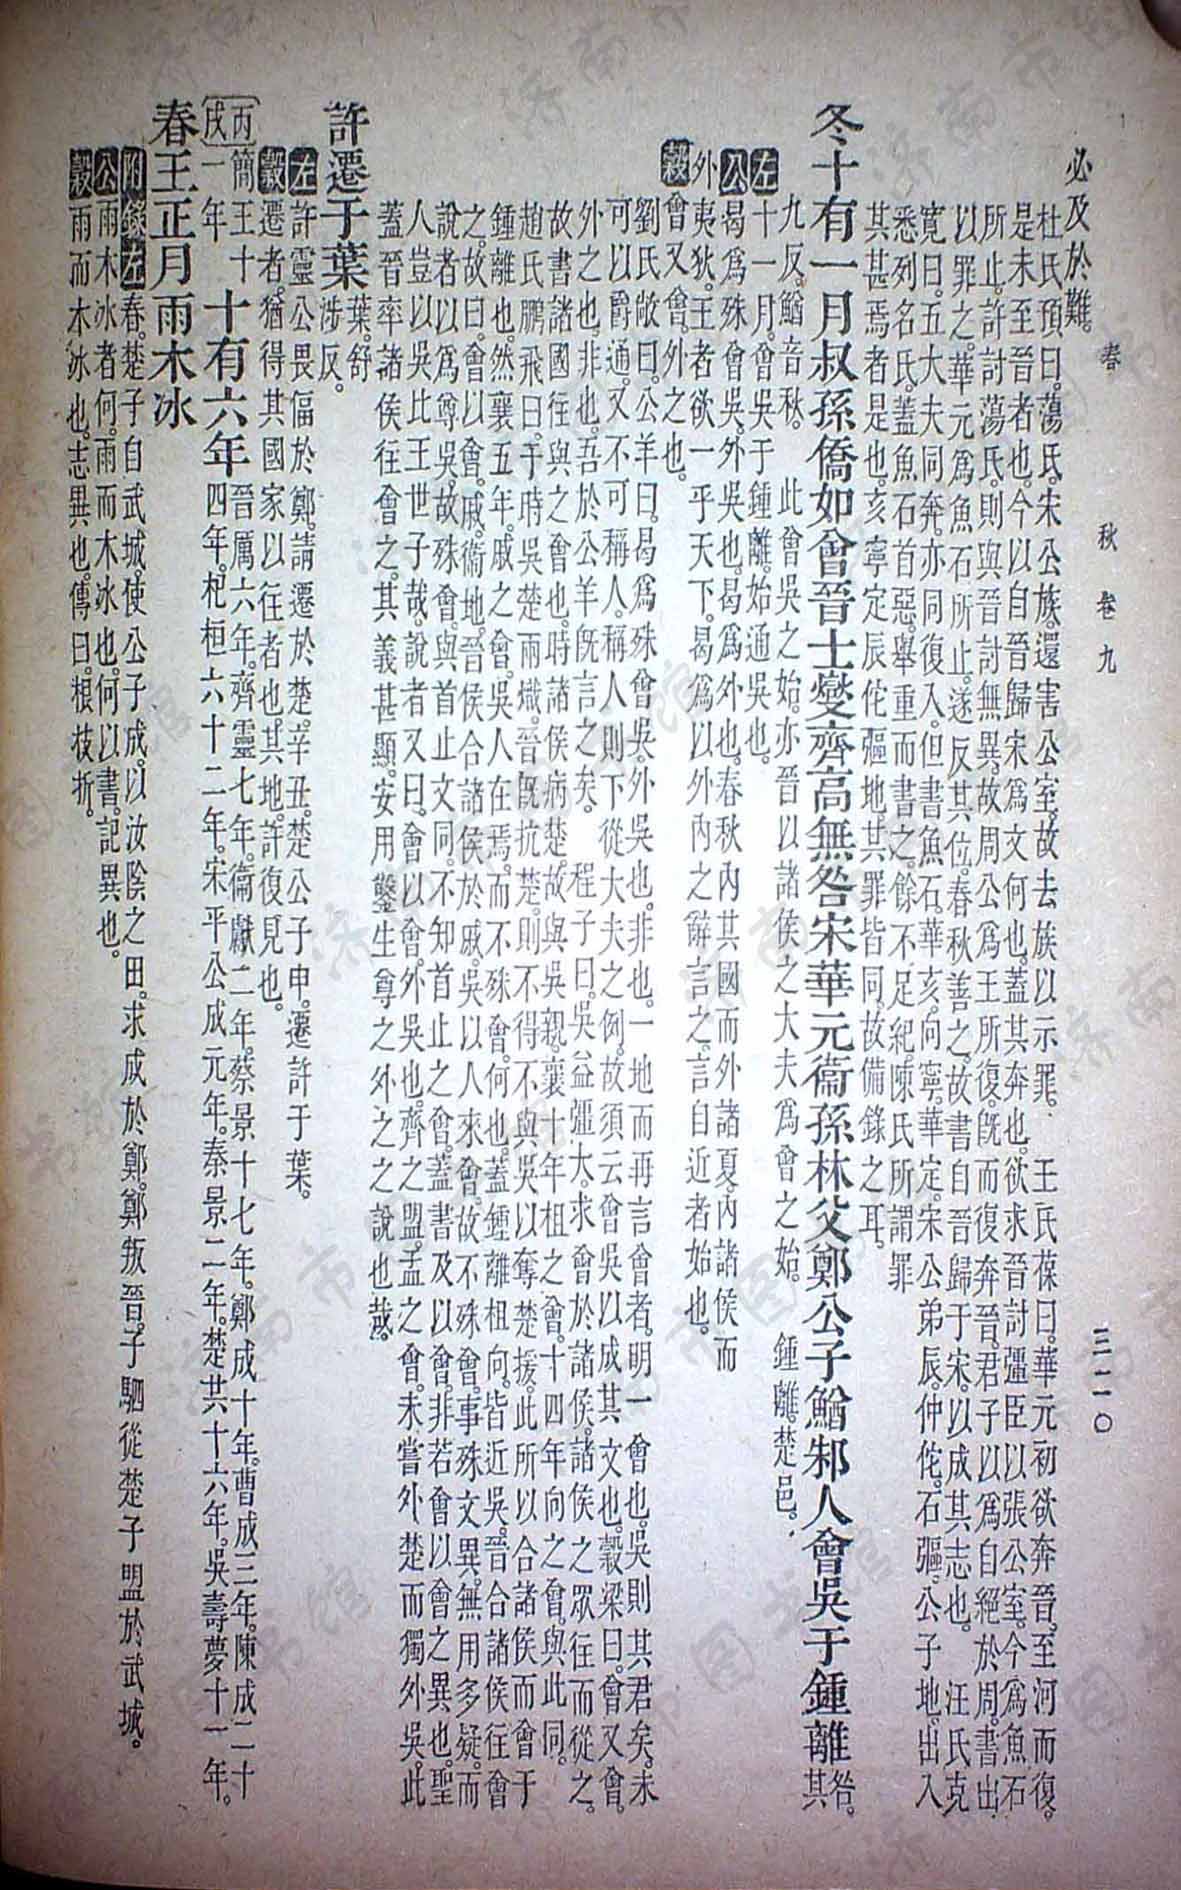 春　秋　卷九　三二〇
必及於難。
杜氏預曰。蕩氏。宋公族。還害公室。故去族以示罪。　王氏葆曰。華元初欲奔晉。至河而復。
是未至晉者也。今以自晉歸宋爲文何也。蓋其奔也。欲求晉討彊臣以張公室。今爲魚石
所止。許討蕩氏。則與晉討無異。故周公爲王所復。旣而復奔晉。君子以爲自絕於周。書出
以罪之。華元爲魚石所止。遂反其位。春秋善之。故書自晉歸于宋。以成其志也。　汪氏克
寬曰。五大夫同奔。亦同復入。但書魚石。華亥。向寧。華定。宋公弟辰。仲佗。石彄。公子地。出入
悉列名氏。蓋魚石首惡。舉重而書之。餘不足紀。陳氏所謂罪
其甚焉者是也。亥寧定辰佗彄地。其罪皆同。故備錄之耳。
冬十有一月叔孫僑如會晉士燮齊高無咎宋華元衞孫林父鄭公子鰌邾人會吳于鍾離
咎。其
九反。鰌音秋。　此會吳之始。亦晉以諸侯之大夫爲會之始。　鍾離。楚邑。
左十一月。會吳于鍾離。始通吳也。
公曷爲殊會吳。外吳也。曷爲外也。春秋內其國而外諸夏。內諸侯而
外夷狄。王者欲一乎天下。曷爲以外內之辭言之。言自近者始也。
穀會又會。外之也。
劉氏敞曰。公羊曰。曷爲殊會吳。外吳也。非也。一地而再言會者。明一會也。吳則其君矣。未
可以爵通。又不可稱人。稱人則下從大夫之例。故須云會吳以成其文也。穀梁曰。會又會。
外之也。非也。吾於公羊旣言之矣。　程子曰。吳益彊大。求會於諸侯。諸侯之眾往而從之。
故書諸國往與之會也。時諸侯病楚。故與吳親。襄十年柤之會。十四年向之會。與此同。
趙氏鵬飛曰。于時吳楚兩熾。晉旣抗楚。則不得不與吳以奪楚援。此所以合諸侯而會于
鍾離也。然襄五年。戚之會。吳人在焉。而不殊會。何也。蓋鍾離柤向。皆近吳。晉合諸侯往會
之。故曰會以會。戚。衞地。晉侯合諸侯於戚。吳以人來會。故不殊會。事殊文異。無用多疑。而
說者以爲尊吳。故殊會。與首止文同。不知首止之會。蓋書及以會。非若會以會之異也。聖
人豈以吳比王世子哉。說者又曰。會以會。外吳也。齊之盟。盂之會。未嘗外楚而獨外吳。此
蓋晉率諸侯往會之。其義甚顯。安用鑿生尊之外之之說也哉。
許遷于葉
葉。舒
涉反。
左許靈公畏偪於鄭。請遷於楚。辛丑。楚公子申。遷許于葉。
穀遷者。猶得其國家以往者也。其地。許復見也。
丙戌
簡王十
一年
十有六年
晉厲六年。齊靈七年。衞獻二年。蔡景十七年。鄭成十年。曹成三年。陳成二十
四年。杞桓六十二年。宋平公成元年。秦景二年。楚共十六年。吳壽夢十一年。
春王正月雨木冰
附錄左春。楚子自武城。使公子成。以汝陰之田。求成於鄭。鄭叛晉。子駟從楚子盟於武城。
公雨木冰者何。雨而木冰也。何以書。記異也。
穀雨而木冰也。志異也。傳曰。根枝折。